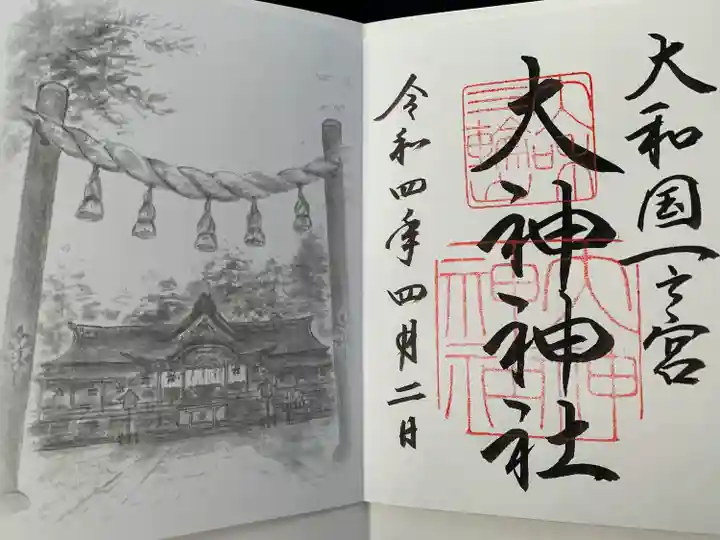 大和国一之宮
大神神社
令和四年四月二日
三輪山
大神神社